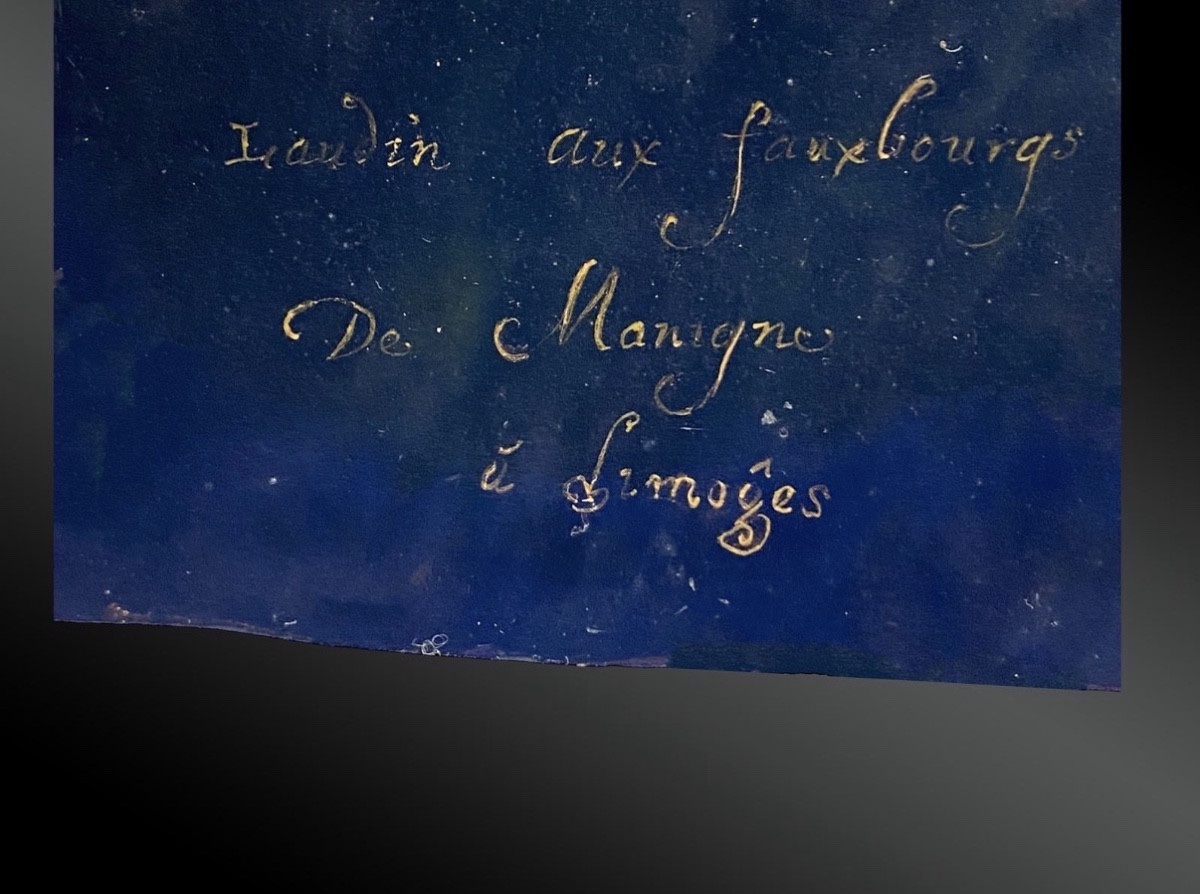 Laudin aux fauxbourgs
De Manigne
ă Limoĝes